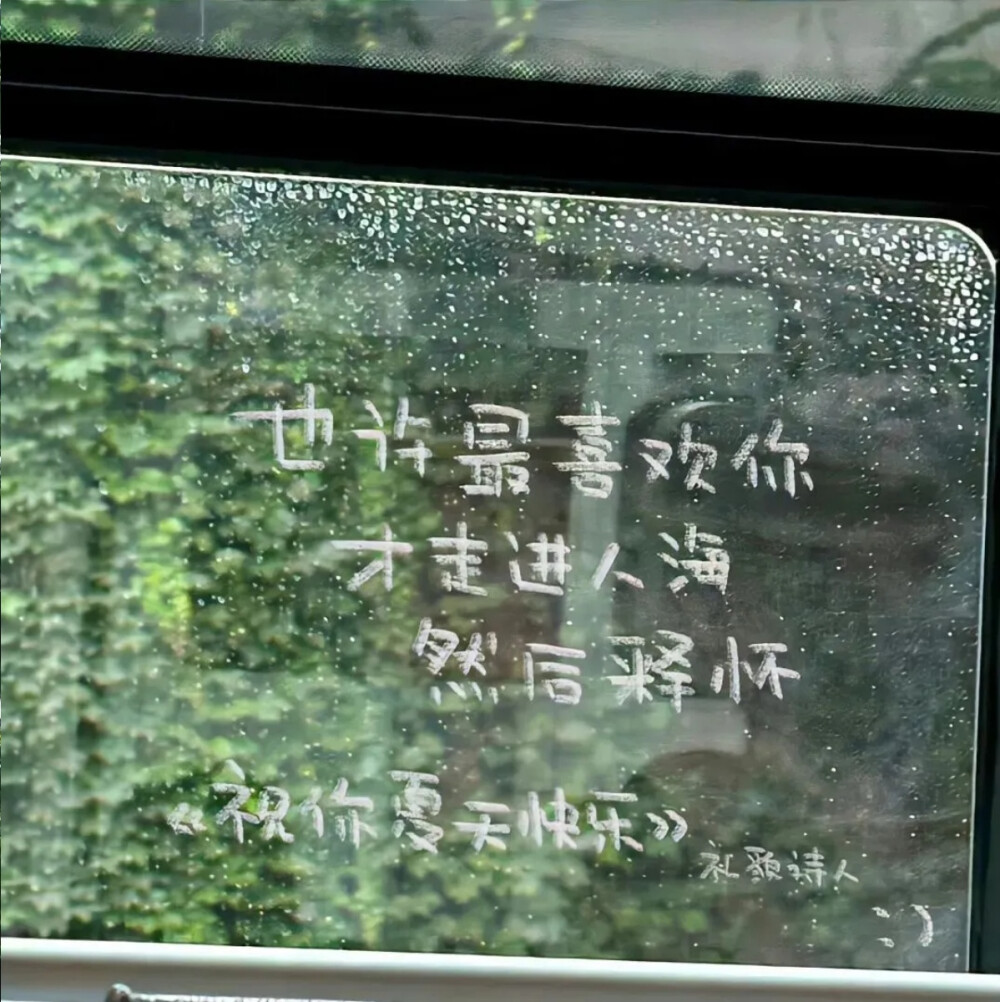 也许最喜欢你
才走进人海
然后释怀
《祝你夏天快乐》
礼歌诗人
:)